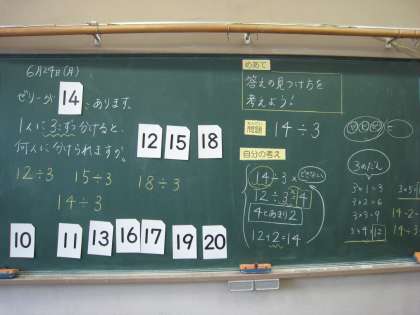 6月24日(月)
ゼリーが 14 こあります。
1人に3こずつ分けると、
何人に分けられますか。
12 15 18
12÷3 15÷3 18÷3
14÷3
10 11 13 16 17 19 20
めあて
答えの見つけ方を
考えよう!
問題 14÷3
自分の考え
14÷3 × できない
12÷3=4
4とあまり2
12+2=14
3のだん
3×1=3
3×2=6
3×3=9
3×4=12
14-2
14÷3